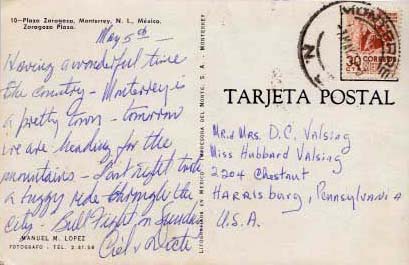 10—Plaza Zaragoza, Monterrey, N. L., México.
Zaragoza Plaza.
May 5th —
Having a wonderful time
the country — Monterrey is
a pretty town — tomorrow
we are heading for the
mountains — last night took
a buggy ride through the
city — Bull Fight on Sunday
MANUEL M. LOPEZ
FOTOGRAFO - TEL. 2-61-58
LITOGRAFIADA EN MEXICO IMPRESORA DEL MONTE, S. A. - MONTERREY
30
CORREOS
TARJETA POSTAL
Mr. & Mrs. D. C. Valsing
Miss Hubbard Valsing
2204 Chestnut
Harrisburg, Pennsylvania
U.S.A.